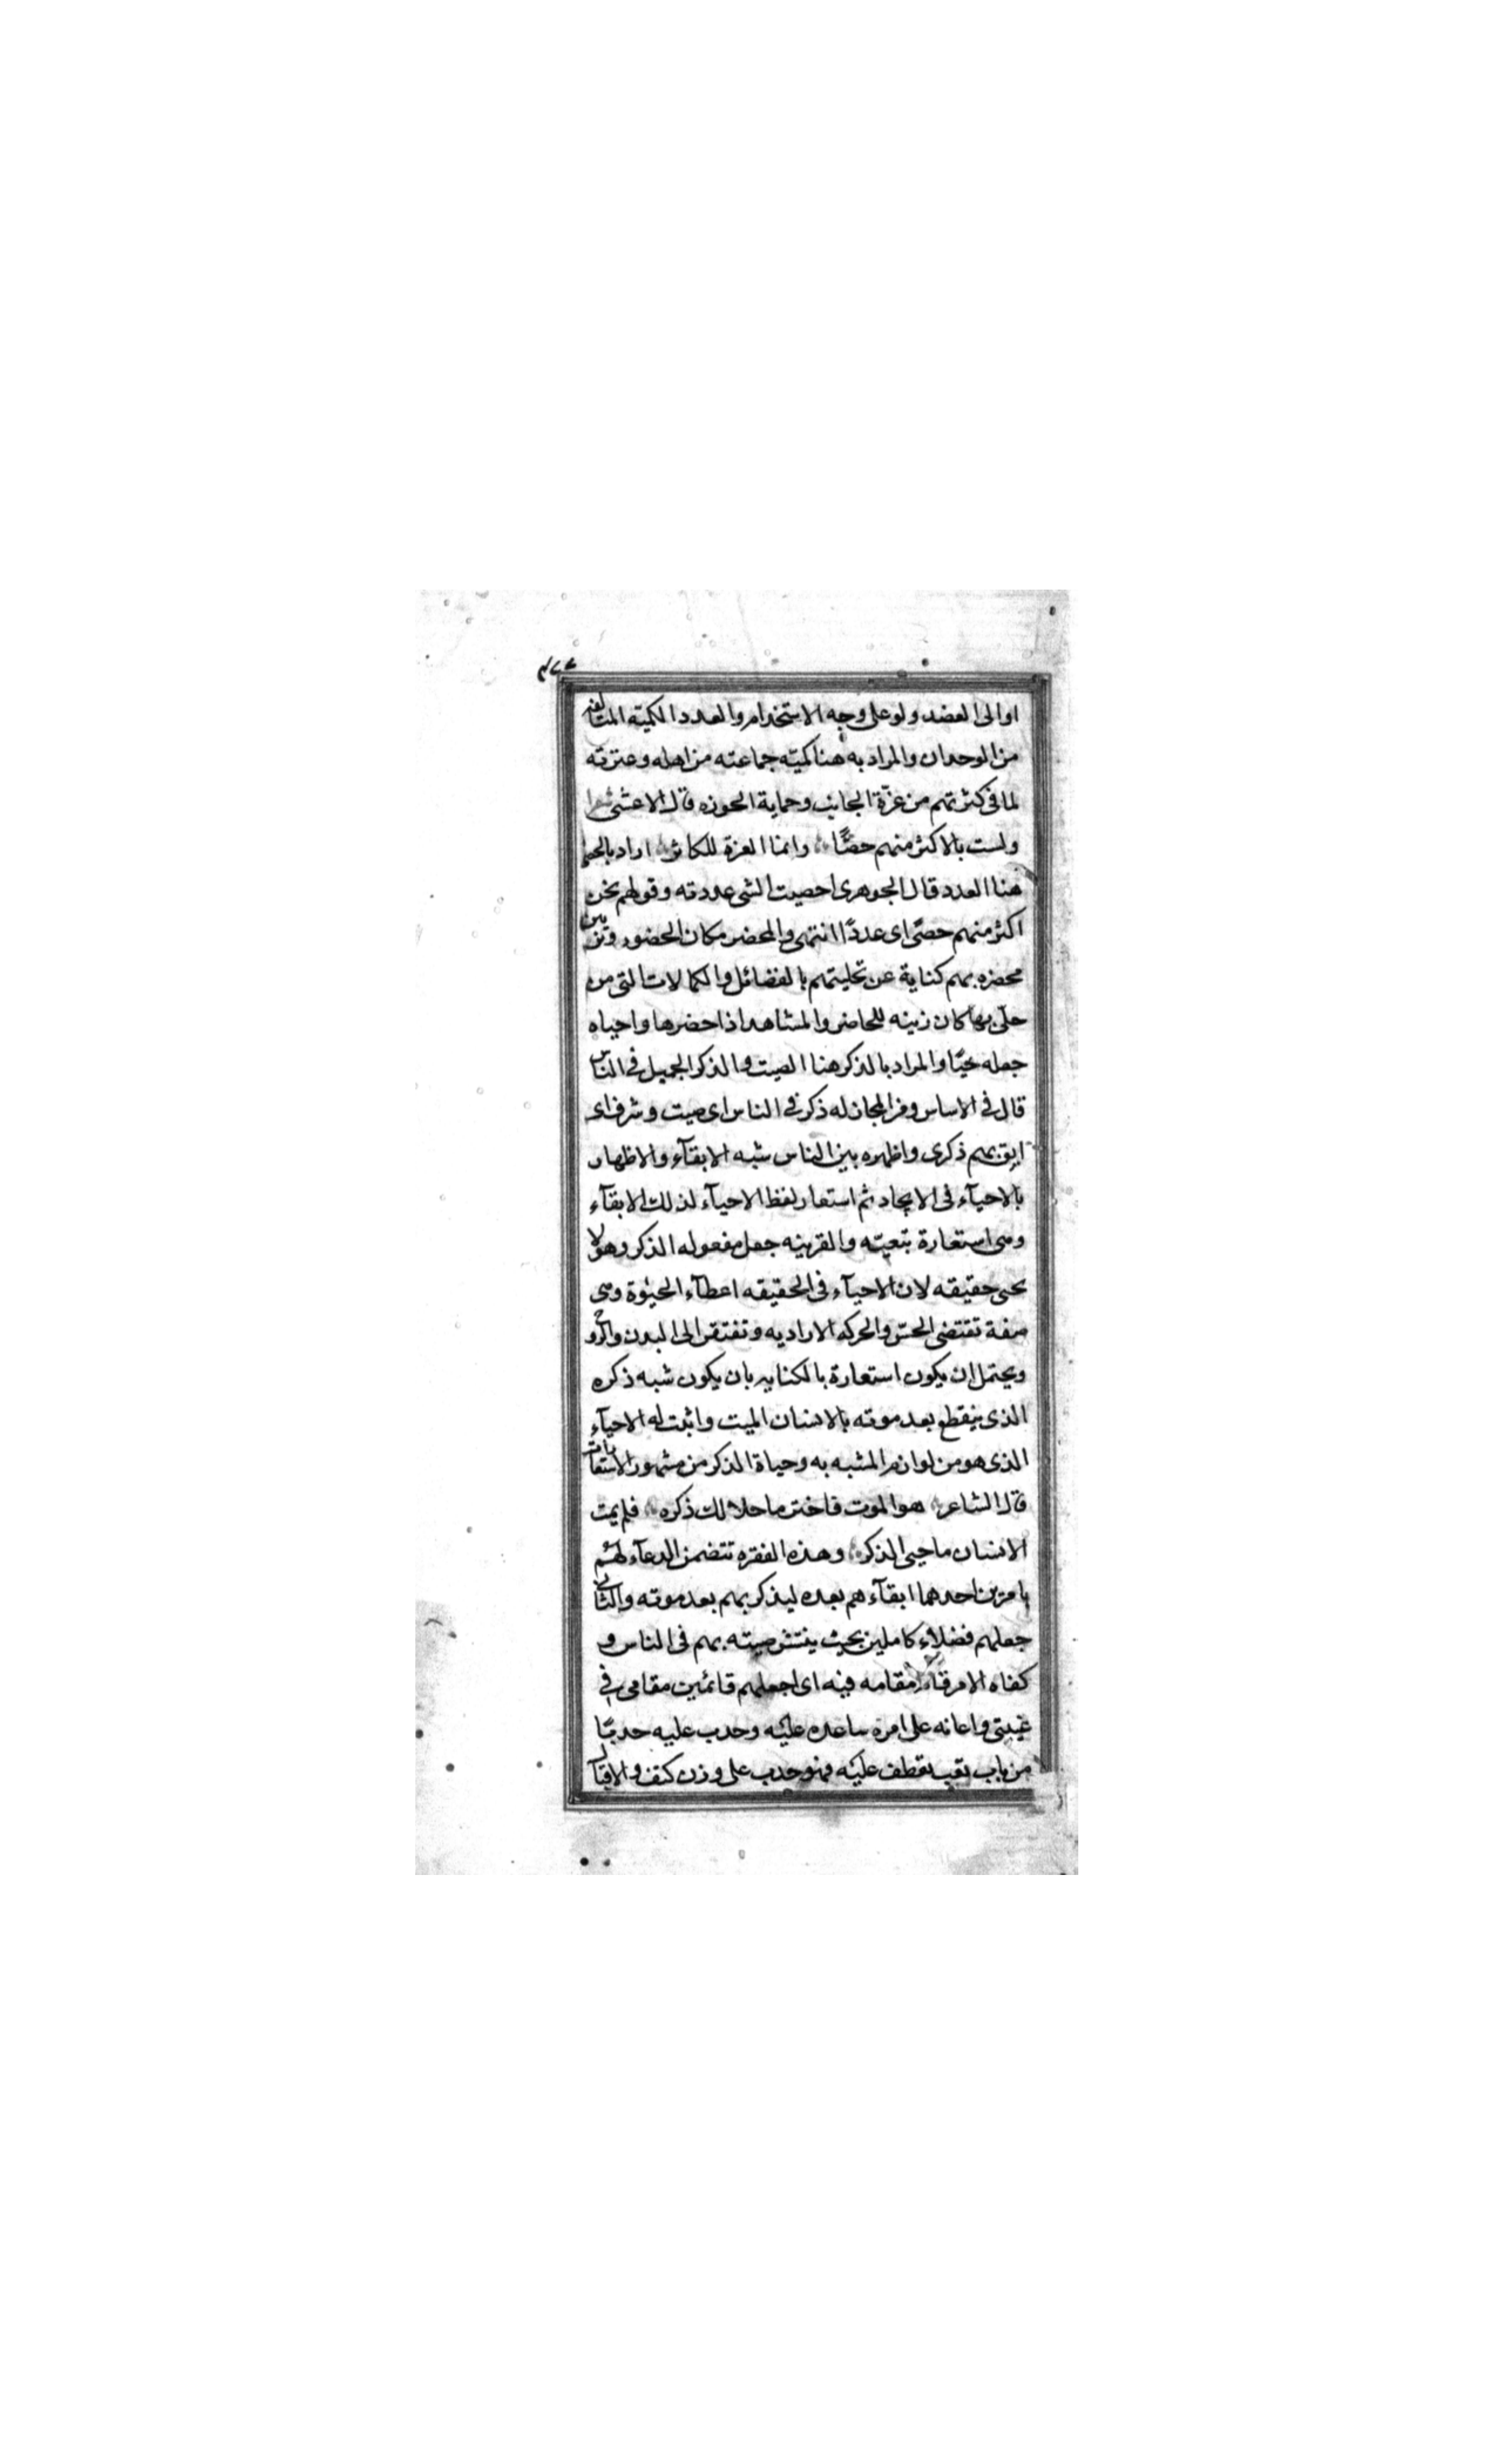 ٤٧٧
او الى العضد ولو على وجه الاستخدام والعدد الكمية المتالفه
من الوحدان والمراد به هنا كميته جماعته من اهله وعترته
لما فى كثرتهم من عزّة الجانب وحماية الحوزه قال الاعشى شعرا
ولست بالاكثر منهم حصًّا وانما العزة للكاثر اراد بالحصا
هنا العدد قال الجوهرى احصيت الشى عددته وقولهم نحن
اكثر منهم حصًى اى عددًا انتهى والمحضر مكان الحضور وتزيين
محضره بهم كناية عن تحليتهم بالفضائل والكمالات التى من
حلّى بها كان زينه للحاضر والمشاهد اذا حضرها واحياه
جعله حيّا والمراد بالذكر هنا الصيت والذكر الجميل فى الناس
قال فى الاساس ومن المجاز له ذكر فى الناس اى صيت وشرف اى
ابق بهم ذكرى واظهره بين الناس شبه الابقآء والاظهار
بالاحيآء فى الايجاد ثم استعار لفظ الاحيآء لذلك الابقآء
وهى استعارة بتعيّته والقرينه جعل مفعوله الذكر وهو لا
يحيى حقيقه لان الاحيآء فى الحقيقه اعطآء الحيوٰة وهى
صفة تقتضى الحسّ والحركه الاراديه وتفتقر الى البدن والرّوح
ويحتمل ان يكون استعارة بالكنايه بان يكون شبه ذكره
الذى ينقطع بعد موته بالانسان الميت واثبت له الاحيآء
الذى هو من لوازم المشبه به وحياة الذكر من مشهور الاستعارات
قال الشاعر هو الموت فاختر ما حلا لك ذكره فلم يمت
الانسان ما حيى الذكر وهذه الفقره تتضمن الدعآء لهم
بامرين احدهما ابقآء هم بعده ليذكر بهم بعد موته والثانى
جعلهم فضلاء كاملين بحيث ينتشر صيته بهم فى الناس و
كفاه الامر قام مقامه فيه اى اجعلهم قائمين مقامى فى
غيبتى واعانه على امره ساعده عليه وحدب عليه حدبًا
من باب تعب تعطف عليه فهو حدب على وزن كتف والاقبال